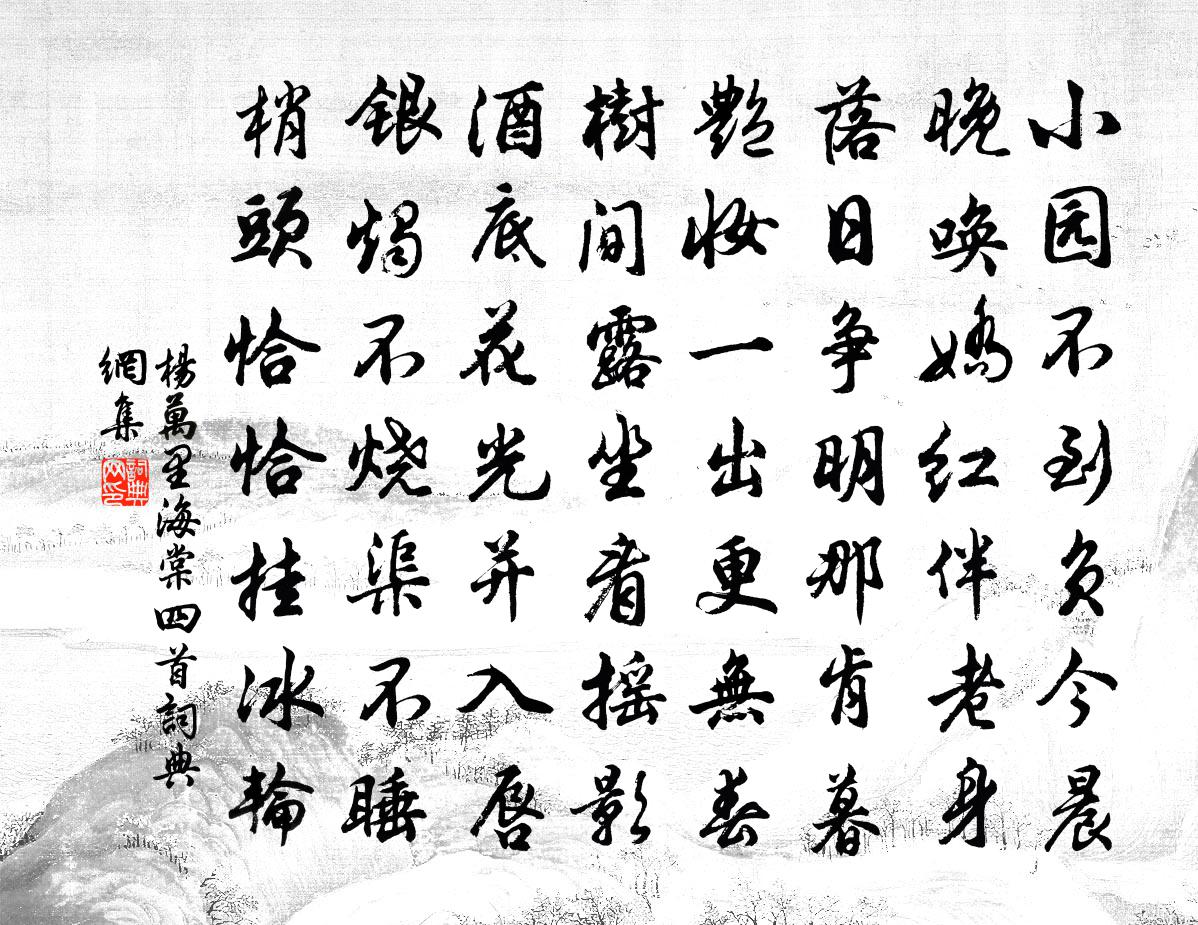 小园不到负今晨
晚唤娇红伴老身
落日争明那肯暮
艷妆一出更無春
樹間露坐看摇影
酒底花光并入唇
銀燭不烧渠不睡
梢頭恰恰挂冰輪
楊萬里海棠四首詞典
網集
詞典網印